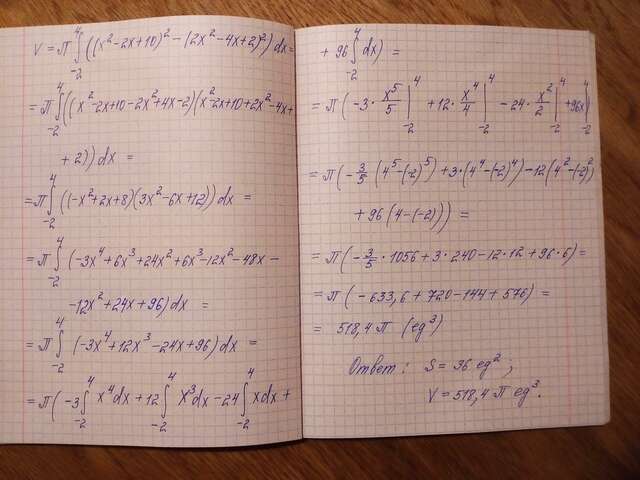 V = π ∫₋₂⁴ ((x²-2x+10)² - (2x²-4x+2)²) dx =
= π ∫₋₂⁴ ((x²-2x+10-2x²+4x-2)(x²-2x+10+2x²-4x+
+ 2)) dx =
= π ∫₋₂⁴ ((-x²+2x+8)(3x²-6x+12)) dx =
= π ∫₋₂⁴ (-3x⁴+6x³+24x²+6x³-12x²-48x-
-12x²+24x+96) dx =
= π ∫₋₂⁴ (-3x⁴+12x³-24x+96) dx =
= π (-3 ∫₋₂⁴ x⁴dx + 12 ∫₋₂⁴ x³dx - 24 ∫₋₂⁴ xdx +
+ 96 ∫₋₂⁴ dx) =
= π (-3 · x⁵/5 |₋₂⁴ + 12 · x⁴/4 |₋₂⁴ - 24 · x²/2 |₋₂⁴ + 96x |₋₂⁴)
= π (-3/5 (4⁵-(-2)⁵) + 3·(4⁴-(-2)⁴) - 12(4²-(-2)²)
+ 96(4-(-2))) =
= π (-3/5 · 1056 + 3 · 240 - 12 · 12 + 96 · 6) =
= π (-633,6 + 720 - 144 + 576) =
= 518,4 π (ед³)
Ответ: S = 36 ед²;
V = 518,4 π ед³.